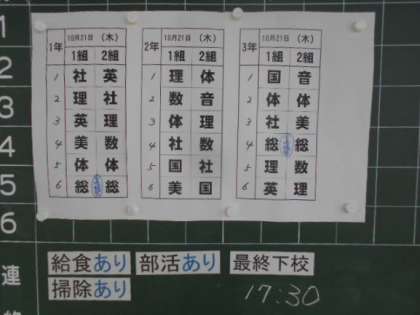 1年 10月21日 (木)
1組 2組
1 社 英
2 理 社
3 英 理
4 美 数
5 体 体
6 総 総
2年 10月21日 (木)
1組 2組
1 理 体
2 数 音
3 体 理
4 社 数
5 国 社
6 美 国
3年 10月21日 (木)
1組 2組
1 国 音
2 体 体
3 社 美
4 総 総
5 理 数
6 英 理
1
2
3
4
5
6
連
給食あり 部活あり 最終下校
掃除あり 17:30